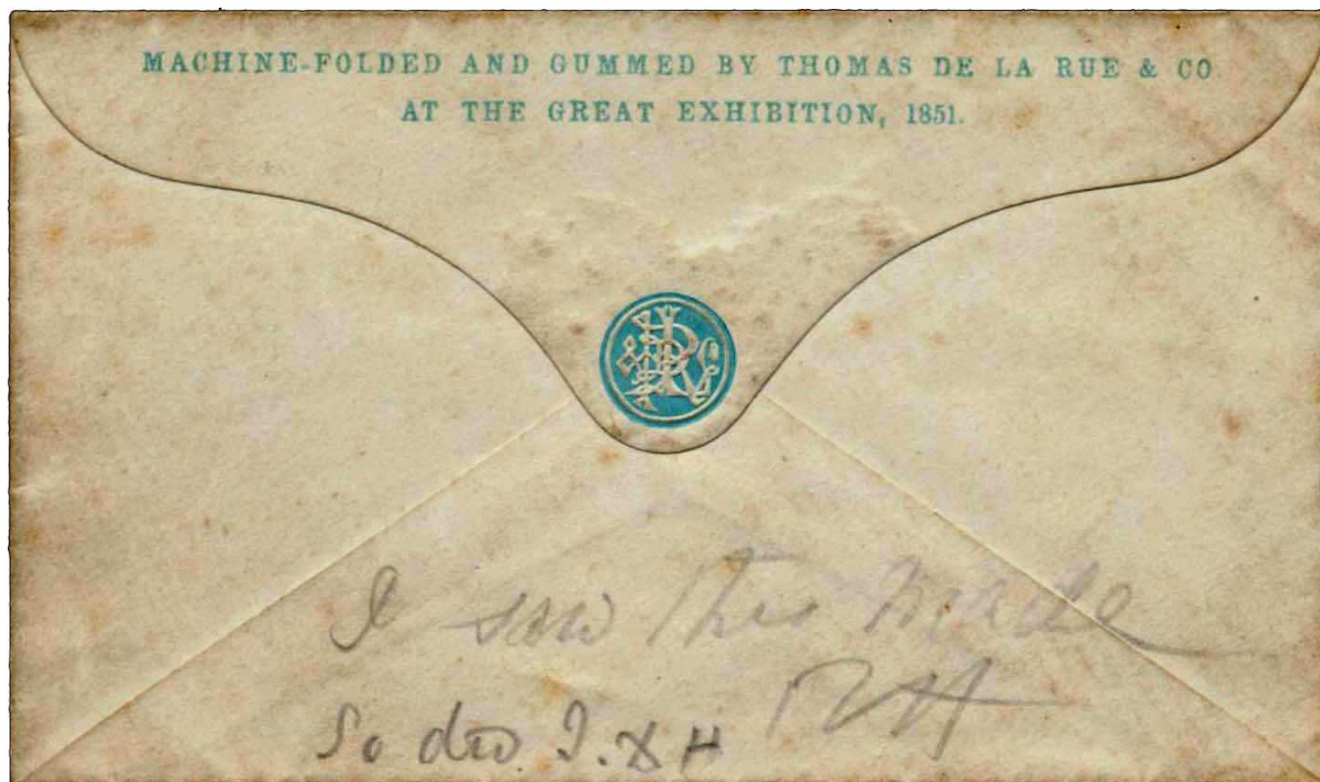 MACHINE-FOLDED AND GUMMED BY THOMAS DE LA RUE & CO
AT THE GREAT EXHIBITION, 1851.
I saw this made
RH
So did I.